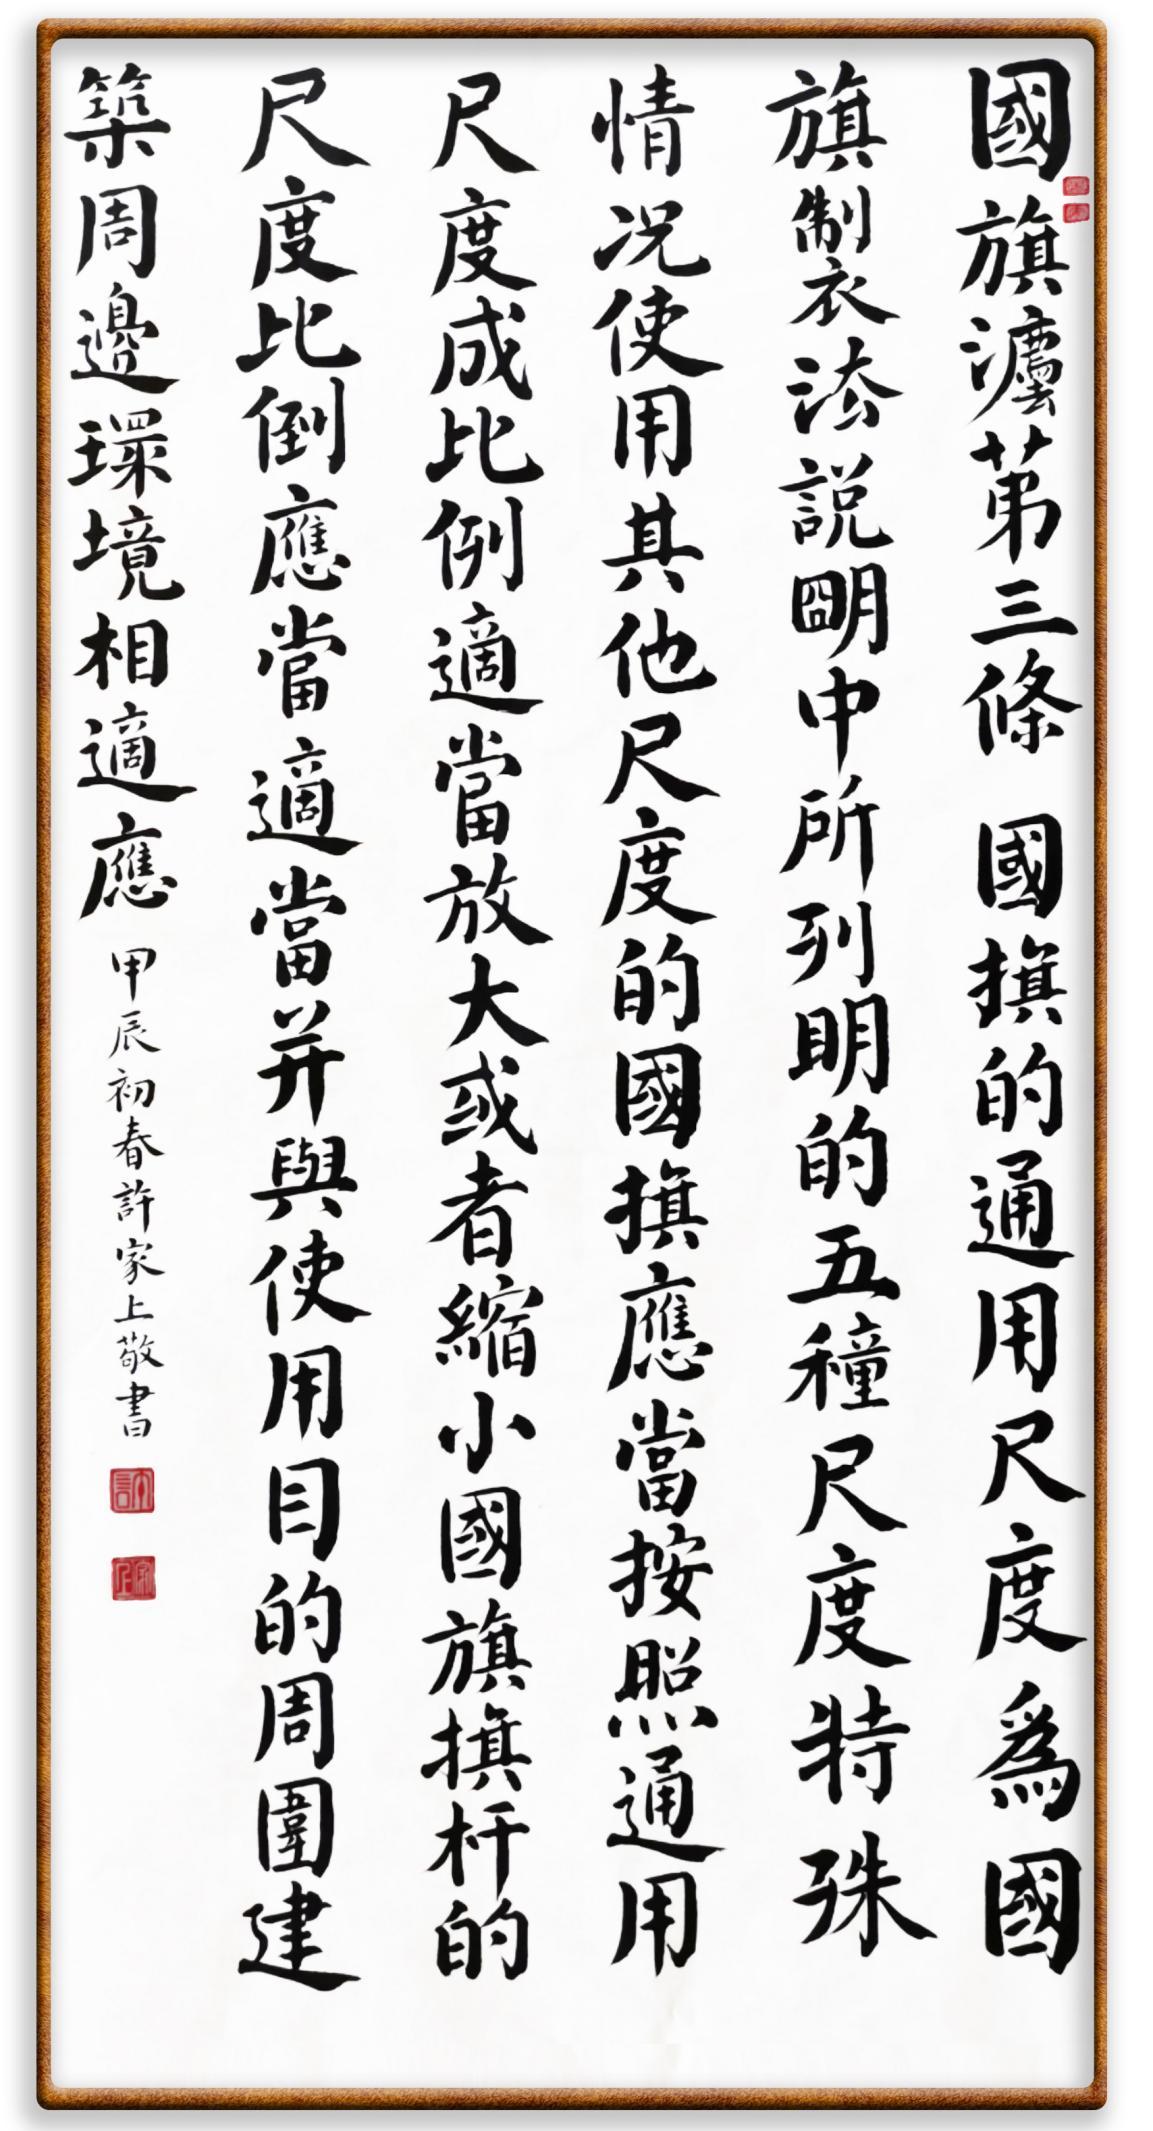 國旗灋苐三條 國旗的通用尺度爲國
旗製法説明中所列明的五穜尺度特殊
情况使用其他尺度的國旗應當按照通用
尺度成比例適當放大或者縮小國旗旗杆的
尺度比倒應當適當并與使用目的周圍建
築周邊環境相適應 甲辰初春許家上敬書